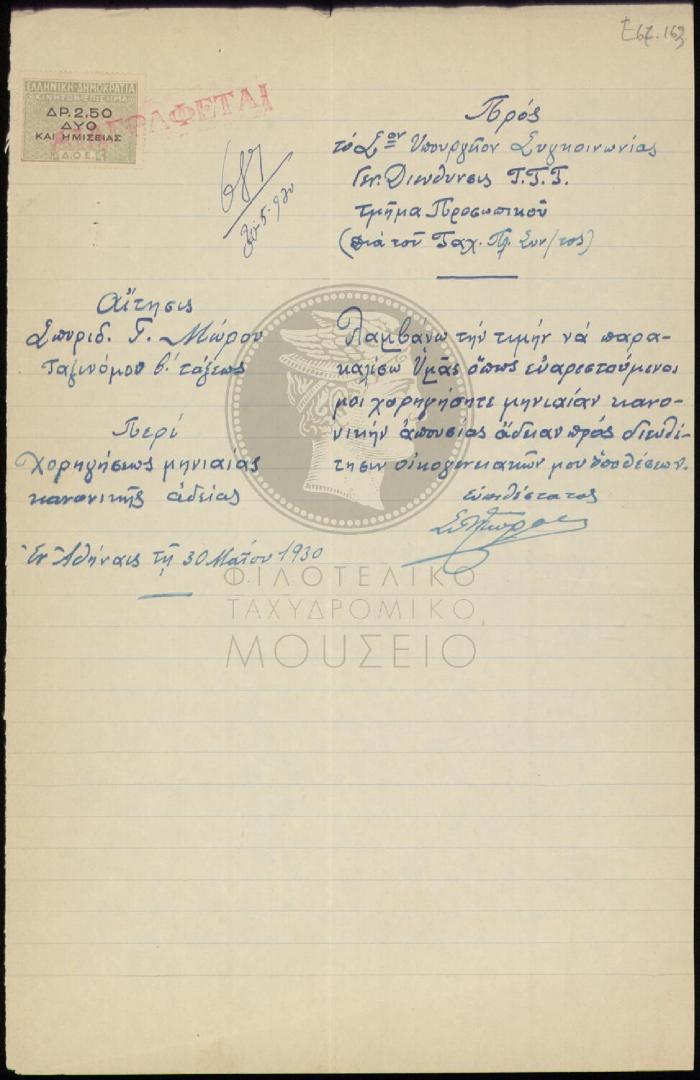 Ε67.163
ΕΛΛΗΝΙΚΗ ΔΗΜΟΚΡΑΤΙΑ
ΚΙΝΗΤΟΝ ΕΠΙΣΗΜΑ
ΔΡ. 2.50
ΔΥΟ
ΚΑΙ ΗΜΙΣΕΙΑΣ
Δ.Ο.Ε.
30-5-930
Πρὸς
τὸ Σ<sup>ον</sup> Ὑπουργεῖον Συγκοινωνίας
Γεν. Διεύθυνσις Τ.Τ.Τ.
τμῆμα Προσωπικοῦ
(διὰ τοῦ Ταχ. Γρ. Συν/τος)
Αἴτησις
Σπυριδ. Γ. Μώρου
Ταξινόμου β′ τάξεως
Περὶ
χορηγήσεως μηνιαίας
κανονικῆς ἀδείας
Ἐν Ἀθήναις τῇ 30 Μαΐου 1930
Λαμβάνω τὴν τιμὴν νὰ παρα-
καλέσω Ὑμᾶς ὅπως εὐαρεστούμενοι
μοι χορηγήσητε μηνιαίαν κανο-
νικὴν ἀπουσίας ἄδειαν πρὸς διευθέ-
τησιν οἰκογενειακῶν μου ὑποθέσεων.
εὐπειθέστατος
Σπ Μώρος
ΦΙΛΟΤΕΛΙΚΟ
ΤΑΧΥΔΡΟΜΙΚΟ
ΜΟΥΣΕΙΟ